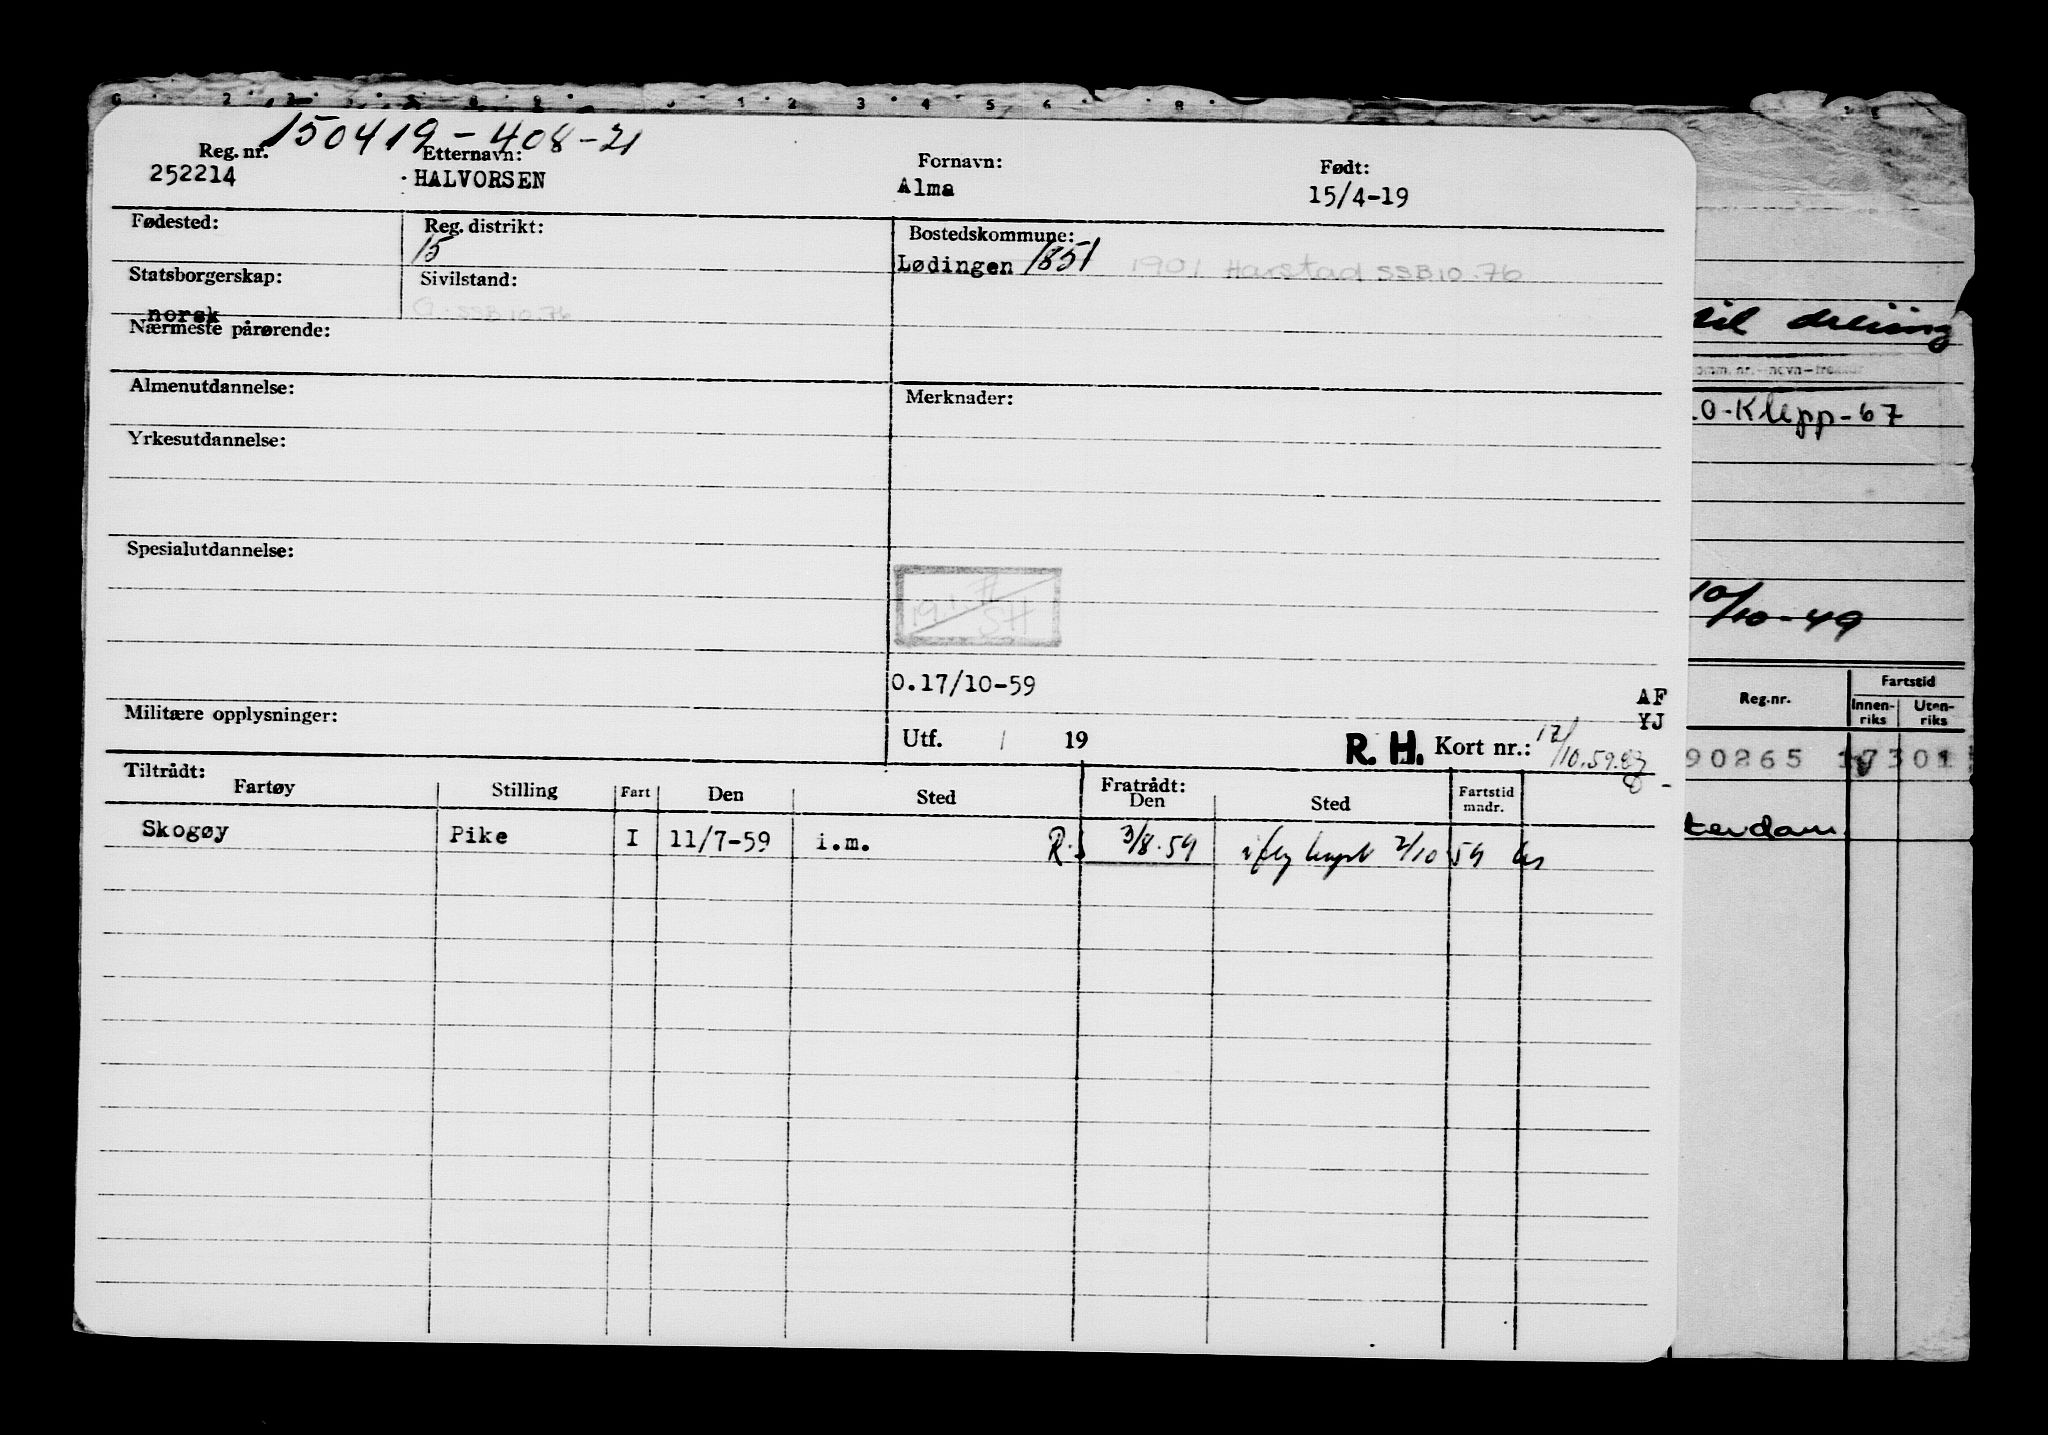 150419-408-21
Reg. nr. Etternavn: Fornavn: Født:
252214 HALVORSEN Alma 15/4-19
Fødested: Reg. distrikt: Bostedskommune:
15 Lødingen 1851 1901 Harstad SSB10.76
Statsborgerskap: Sivilstand:
norsk G. SSB 10.76
Nærmeste pårørende:
Almenutdannelse: Merknader:
Yrkesutdannelse:
Spesialutdannelse:
SH
0.17/10-59 AF
Militære opplysninger: YJ
Utf. / 19 R. H. Kort nr.: 17/10.59.
Tiltrådt: Fratrådt:
Fartøy Stilling Fart Den Sted Den Sted Fartstid mndr.
Skogøy Pike I 11/7-59 i.m. R.S 3/8.59 2/10 59
til
comm. nr.-navn-
0-Klepp-67
10/10-49
Reg.nr. Fartstid
Innen-riks Uten-riks
90265